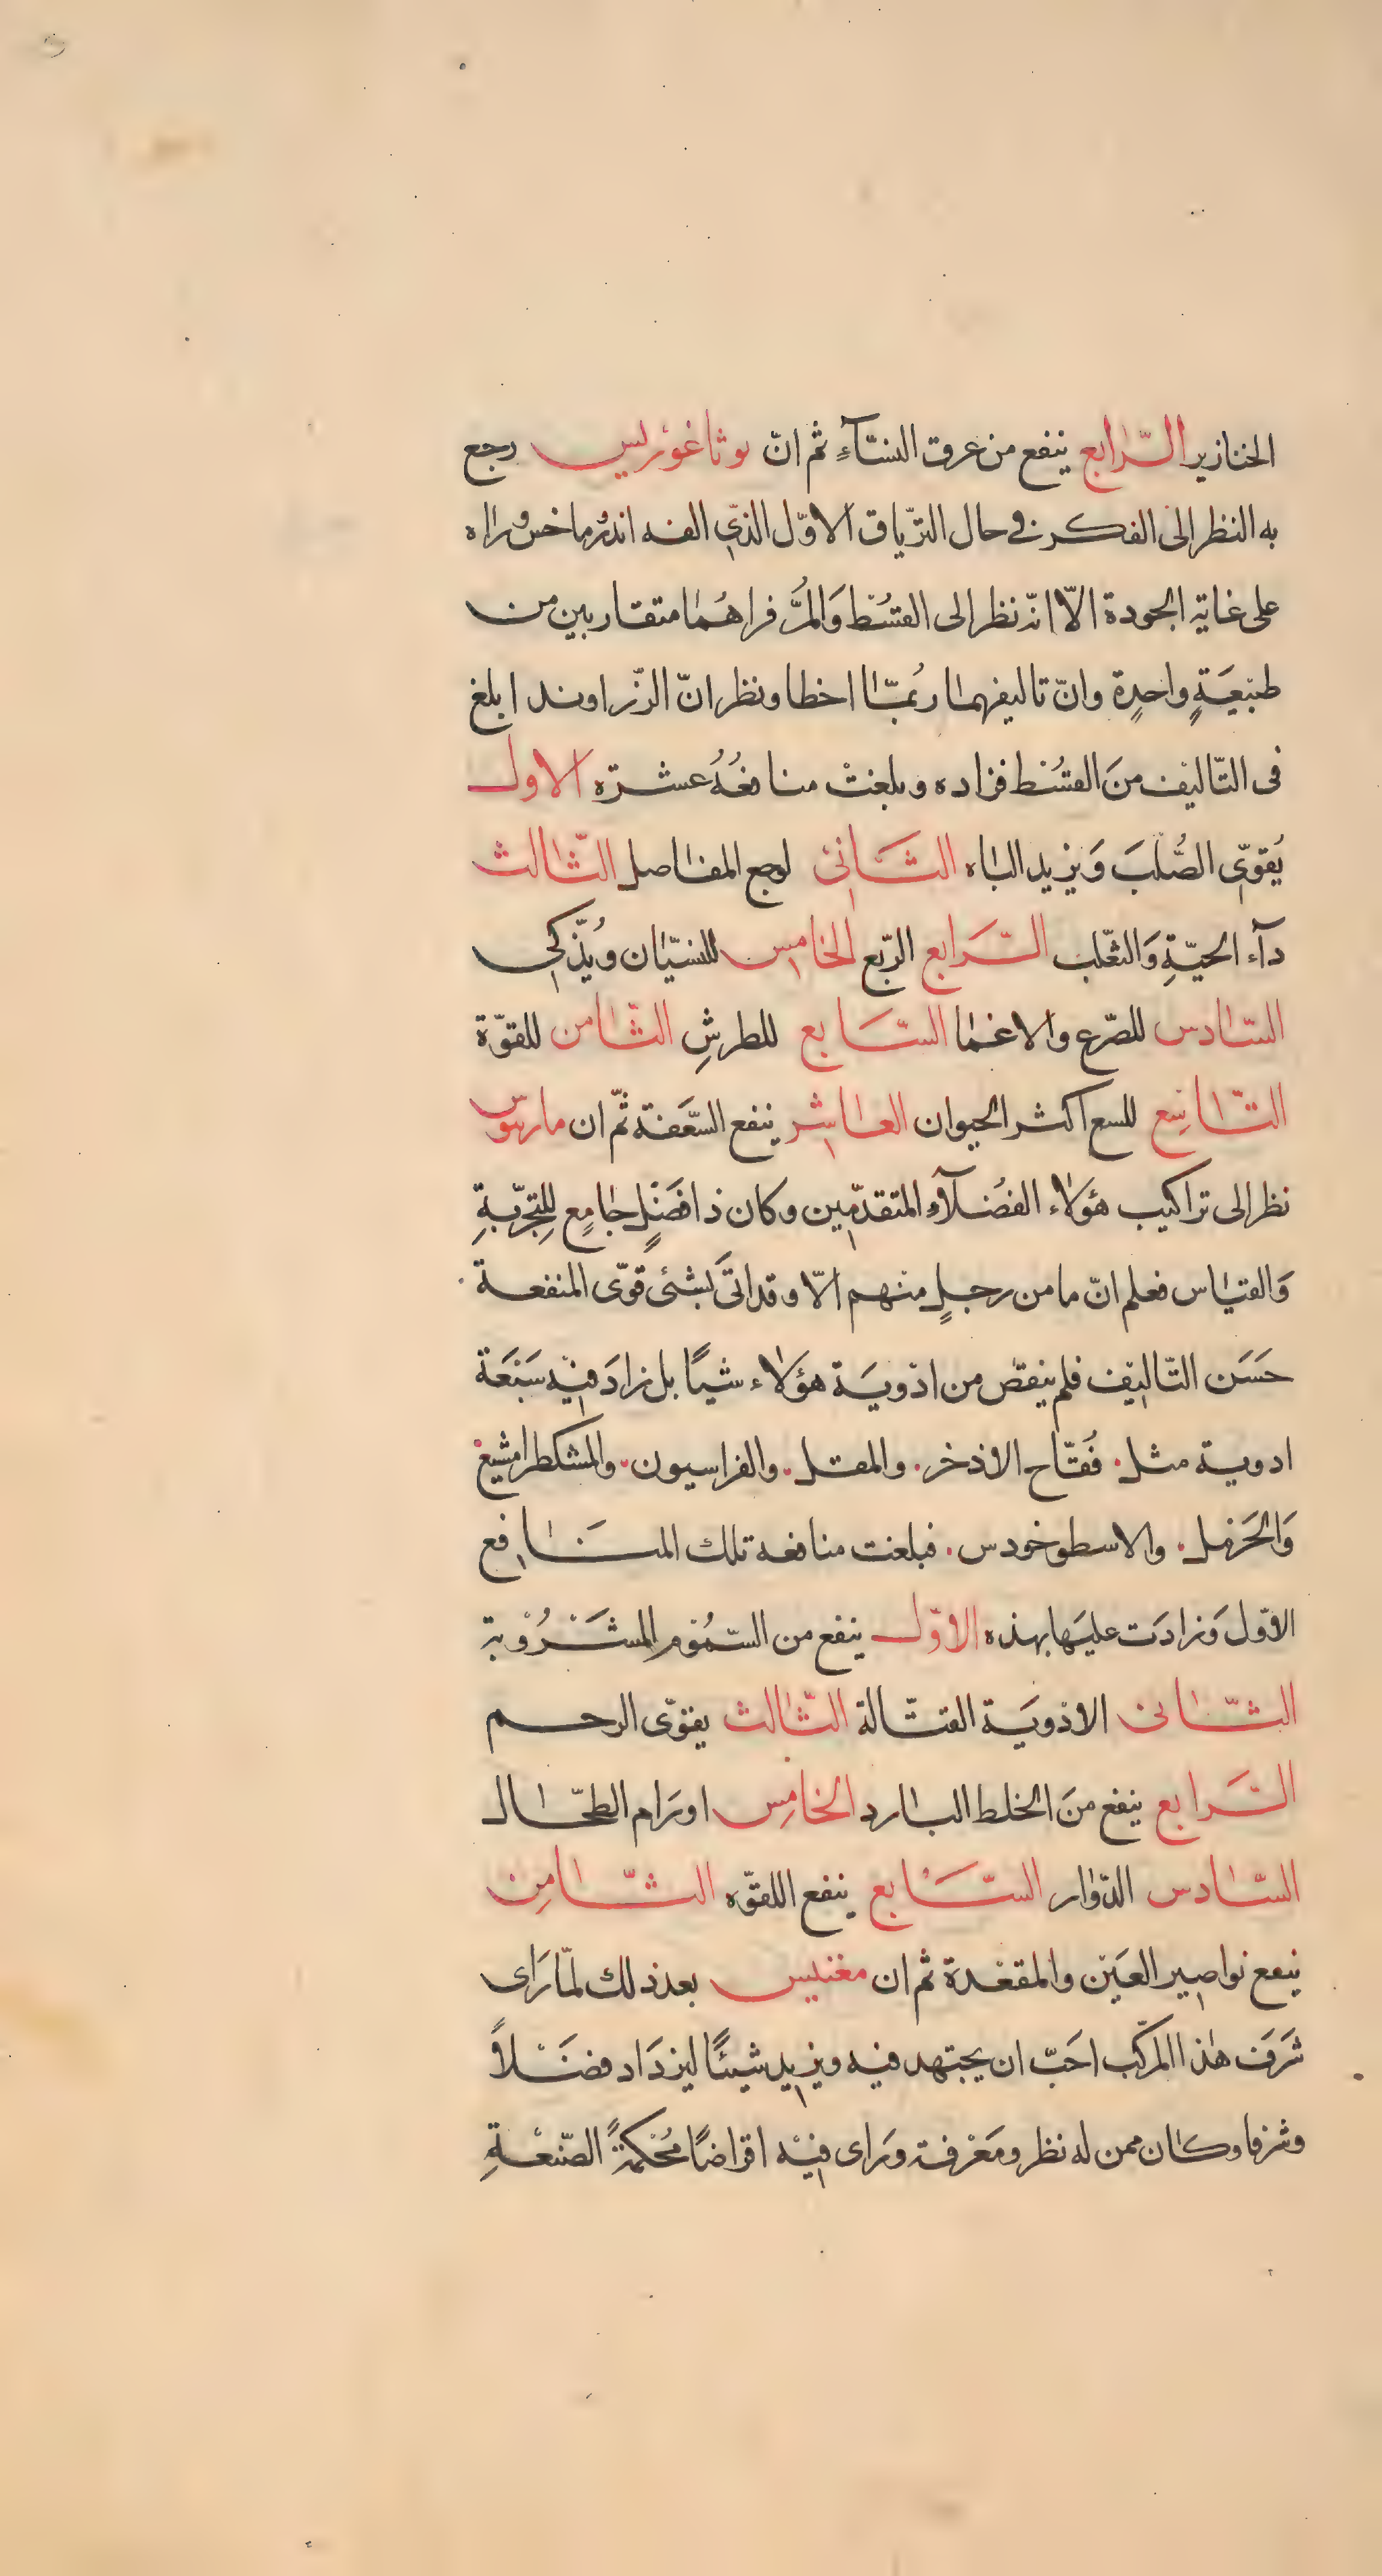 الخنازير الرّابع ينفع من عرق النسَآءِ ثم انّ بوثاغورليس رجع
به النظر الى الفكر في حال الترّياق الاوّل الذّي الفه اندرُوماخس وراه
على غاية الجودة الّا انّه نظر الى القسُط وَالمرُّ فراهُمَا متقاربين من
طبيَعَةٍ واحدٍة وانّ تاليفهما ربُمّا اخطا ونظر انّ الزّراوند ابلغ
فى التّاليف منَ القسُط فزاده وبلغت منافعُهُ عشرَة الاول
يُقوّى الصُّلبَ وَيزيد الباه الثَّانى لوجع المفاصل الثّالث
دآء الحيّةِ وَالثعّلب الرَّابع الربّع الخامس للنسيّان ويُذّكى
السّادس للصّرع والاغما السّابع للطرشِ الثّامن للقوّة
التّاسِع للسع اكثر الحيوان العاشر ينفع السَّعفة ثّم ان مارنيوس
نظر الى تراكيب هؤلاء الفضُلآءِ المتقدّمين وكان ذا فضَلٍ جامعٍ للِتجربّةِ
وَالقياس فعلم انّ ما من رجلٍ منهم الّا وقد اتىَ بشئ قوّى المنفعة
حَسَن التّاليف فلم ينقص من ادويَة هؤلاء شيًا بل زادَ فيه سَبْعَة
ادوية مثل فُقّاح الاذخر والمقل والفراسيون والمشكطرامشيغ
وَالحَرمل والاسطوخودس فبلغت منافعه تلك المنَافع
الاوّل وَزادَت عليَها بهذه الاوّل ينفع من السّمُوْم المشَرُوْبة
الثّانى الادويَة القتّالة الثّالث يقوّى الرحم
الرَّابع ينفع منَ الخلط البارد الخامِس اورَام الطحّال
السّادس الدّوار السَّابع ينفع اللقوّه الثّامِن
ينفع نواصير العَيْن والمقعْدة ثم ان مغنيس بعد ذلك لمّا رَاى
شرَفَ هٰذا المركّب احَبّ ان يجتهد فيه ويزيد شيئًا ليزدَاد فضَلاً
وشرفا وكان ممن له نظر ومَعْرفة ورَاى فيْه اقراصًا مُحْكمةً الصّنعْةِ